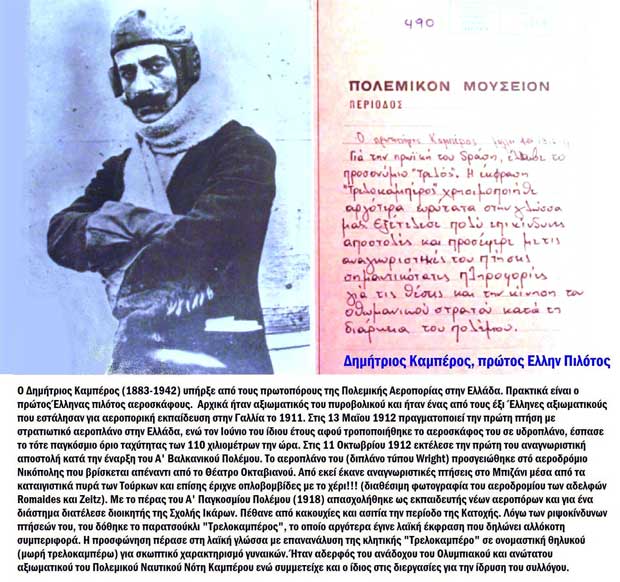 490
ΠΟΛΕΜΙΚΟΝ ΜΟΥΣΕΙΟΝ
ΠΕΡΙΟΔΟΣ
Ο Καμπέρος
Για την ηρωϊκή του δράση, έλαβε το
προσονύμιο "τρελός". Η έκφραση
"Τρελοκαμπέρος" χρησιμοποιήθηκε
αργότερα ευρύτατα στην γλώσσα
μας. Εξετέλεσε πολύ επικίνδυνες
αποστολές και προσέφερε με τις
αναγνωριστικές του πτήσεις
σημαντικότατες πληροφορίες
γιά τις θέσεις και την κίνηση του
οθωμανικού στρατού κατά τη
διάρκεια του πολέμου.
Δημήτριος Καμπέρος, πρώτος Ελλην Πιλότος
Ο Δημήτριος Καμπέρος (1883-1942) υπήρξε από τους πρωτοπόρους της Πολεμικής Αεροπορίας στην Ελλάδα. Πρακτικά είναι ο
πρώτος Έλληνας πιλότος αεροσκάφους. Αρχικά ήταν αξιωματικός του πυροβολικού και ήταν ένας από τους έξι Έλληνες αξιωματικούς
που εστάλησαν για αεροπορική εκπαίδευση στην Γαλλία το 1911. Στις 13 Μαϊου 1912 πραγματοποιεί την πρώτη πτήση με
στρατιωτικό αεροπλάνο στην Ελλάδα, ενώ τον Ιούνιο του ίδιου έτους αφού τροποποιήθηκε το αεροσκάφος του σε υδροπλάνο, έσπασε
το τότε παγκόσμιο όριο ταχύτητας των 110 χιλιομέτρων την ώρα. Στις 11 Οκτωβρίου 1912 εκτέλεσε την πρώτη του αναγνωριστική
αποστολή κατά την έναρξη του Α' Βαλκανικού Πολέμου. Το αεροπλάνο του (διπλάνο τύπου Wright) προσγειώθηκε στό αεροδρόμιο
Νικόπολης που βρίσκεται απέναντι από το Θέατρο Οκταβιανού. Από εκεί έκανε αναγνωριστικές πτήσεις στο Μπιζάνι μέσα από τα
καταιγιστικά πυρά των Τούρκων και επίσης έριχνε οπλοβομβίδες με το χέρι!!! (διαθέσιμη φωτογραφία του αεροδρομίου των αδελφών
Romaides και Zeitz). Με το πέρας του Α' Παγκοσμίου Πολέμου (1918) απασχολήθηκε ως εκπαιδευτής νέων αεροπόρων και για ένα
διάστημα διατέλεσε διοικητής της Σχολής Ικάρων. Πέθανε από κακουχίες και ασιτία την περίοδο της Κατοχής. Λόγω των ριψοκίνδυνων
πτήσεών του, του δόθηκε το παρατσούκλι "Τρελοκαμπέρος", το οποίο αργότερα έγινε λαϊκή έκφραση που δηλώνει αλλόκοτη
συμπεριφορά. Η προσφώνηση πέρασε στη λαϊκή γλώσσα με επανανάλυση της κλητικής "Τρελοκαμπέρο" σε ονομαστική θηλυκού
(μωρή τρελοκαμπέρω) για σκωπτικό χαρακτηρισμό γυναικών. Ήταν αδερφός του ανάδοχου του Ολυμπιακού και ανώτατου
αξιωματικού του Πολεμικού Ναυτικού Νότη Καμπέρου ενώ συμμετείχε και ο ίδιος στις διεργασίες για την ίδρυση του συλλόγου.